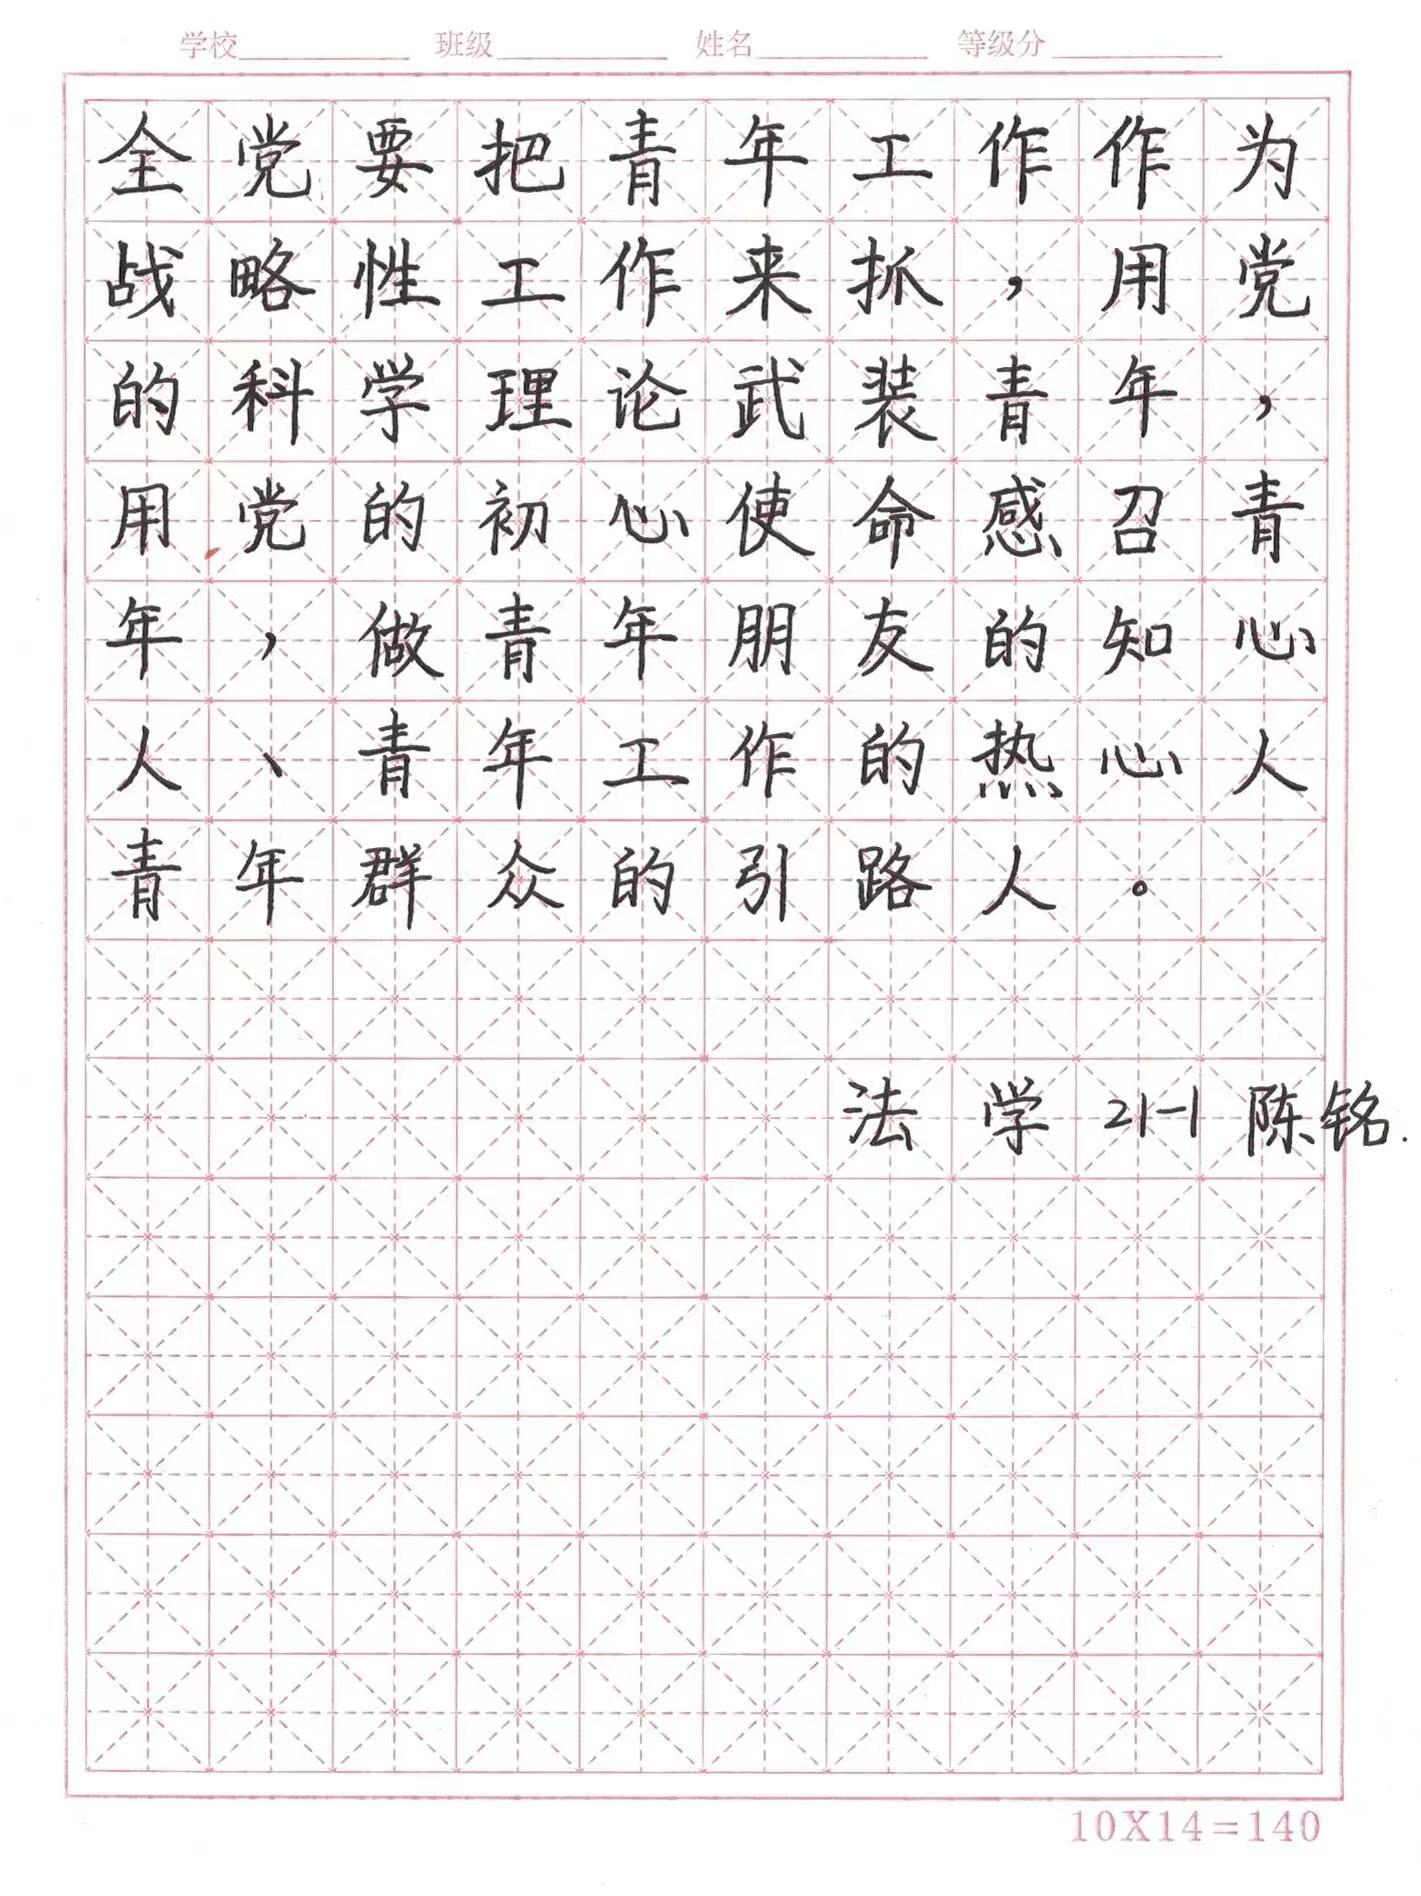 学校 班级 姓名 等级分
全党要把青年工作作为
战略性工作来抓，用党
的科学理论武装青年，
用党的初心使命感召青
年，做青年朋友的知心
人、青年工作的热心人
青年群众的引路人。
法学21-1陈铭.
10X14=140